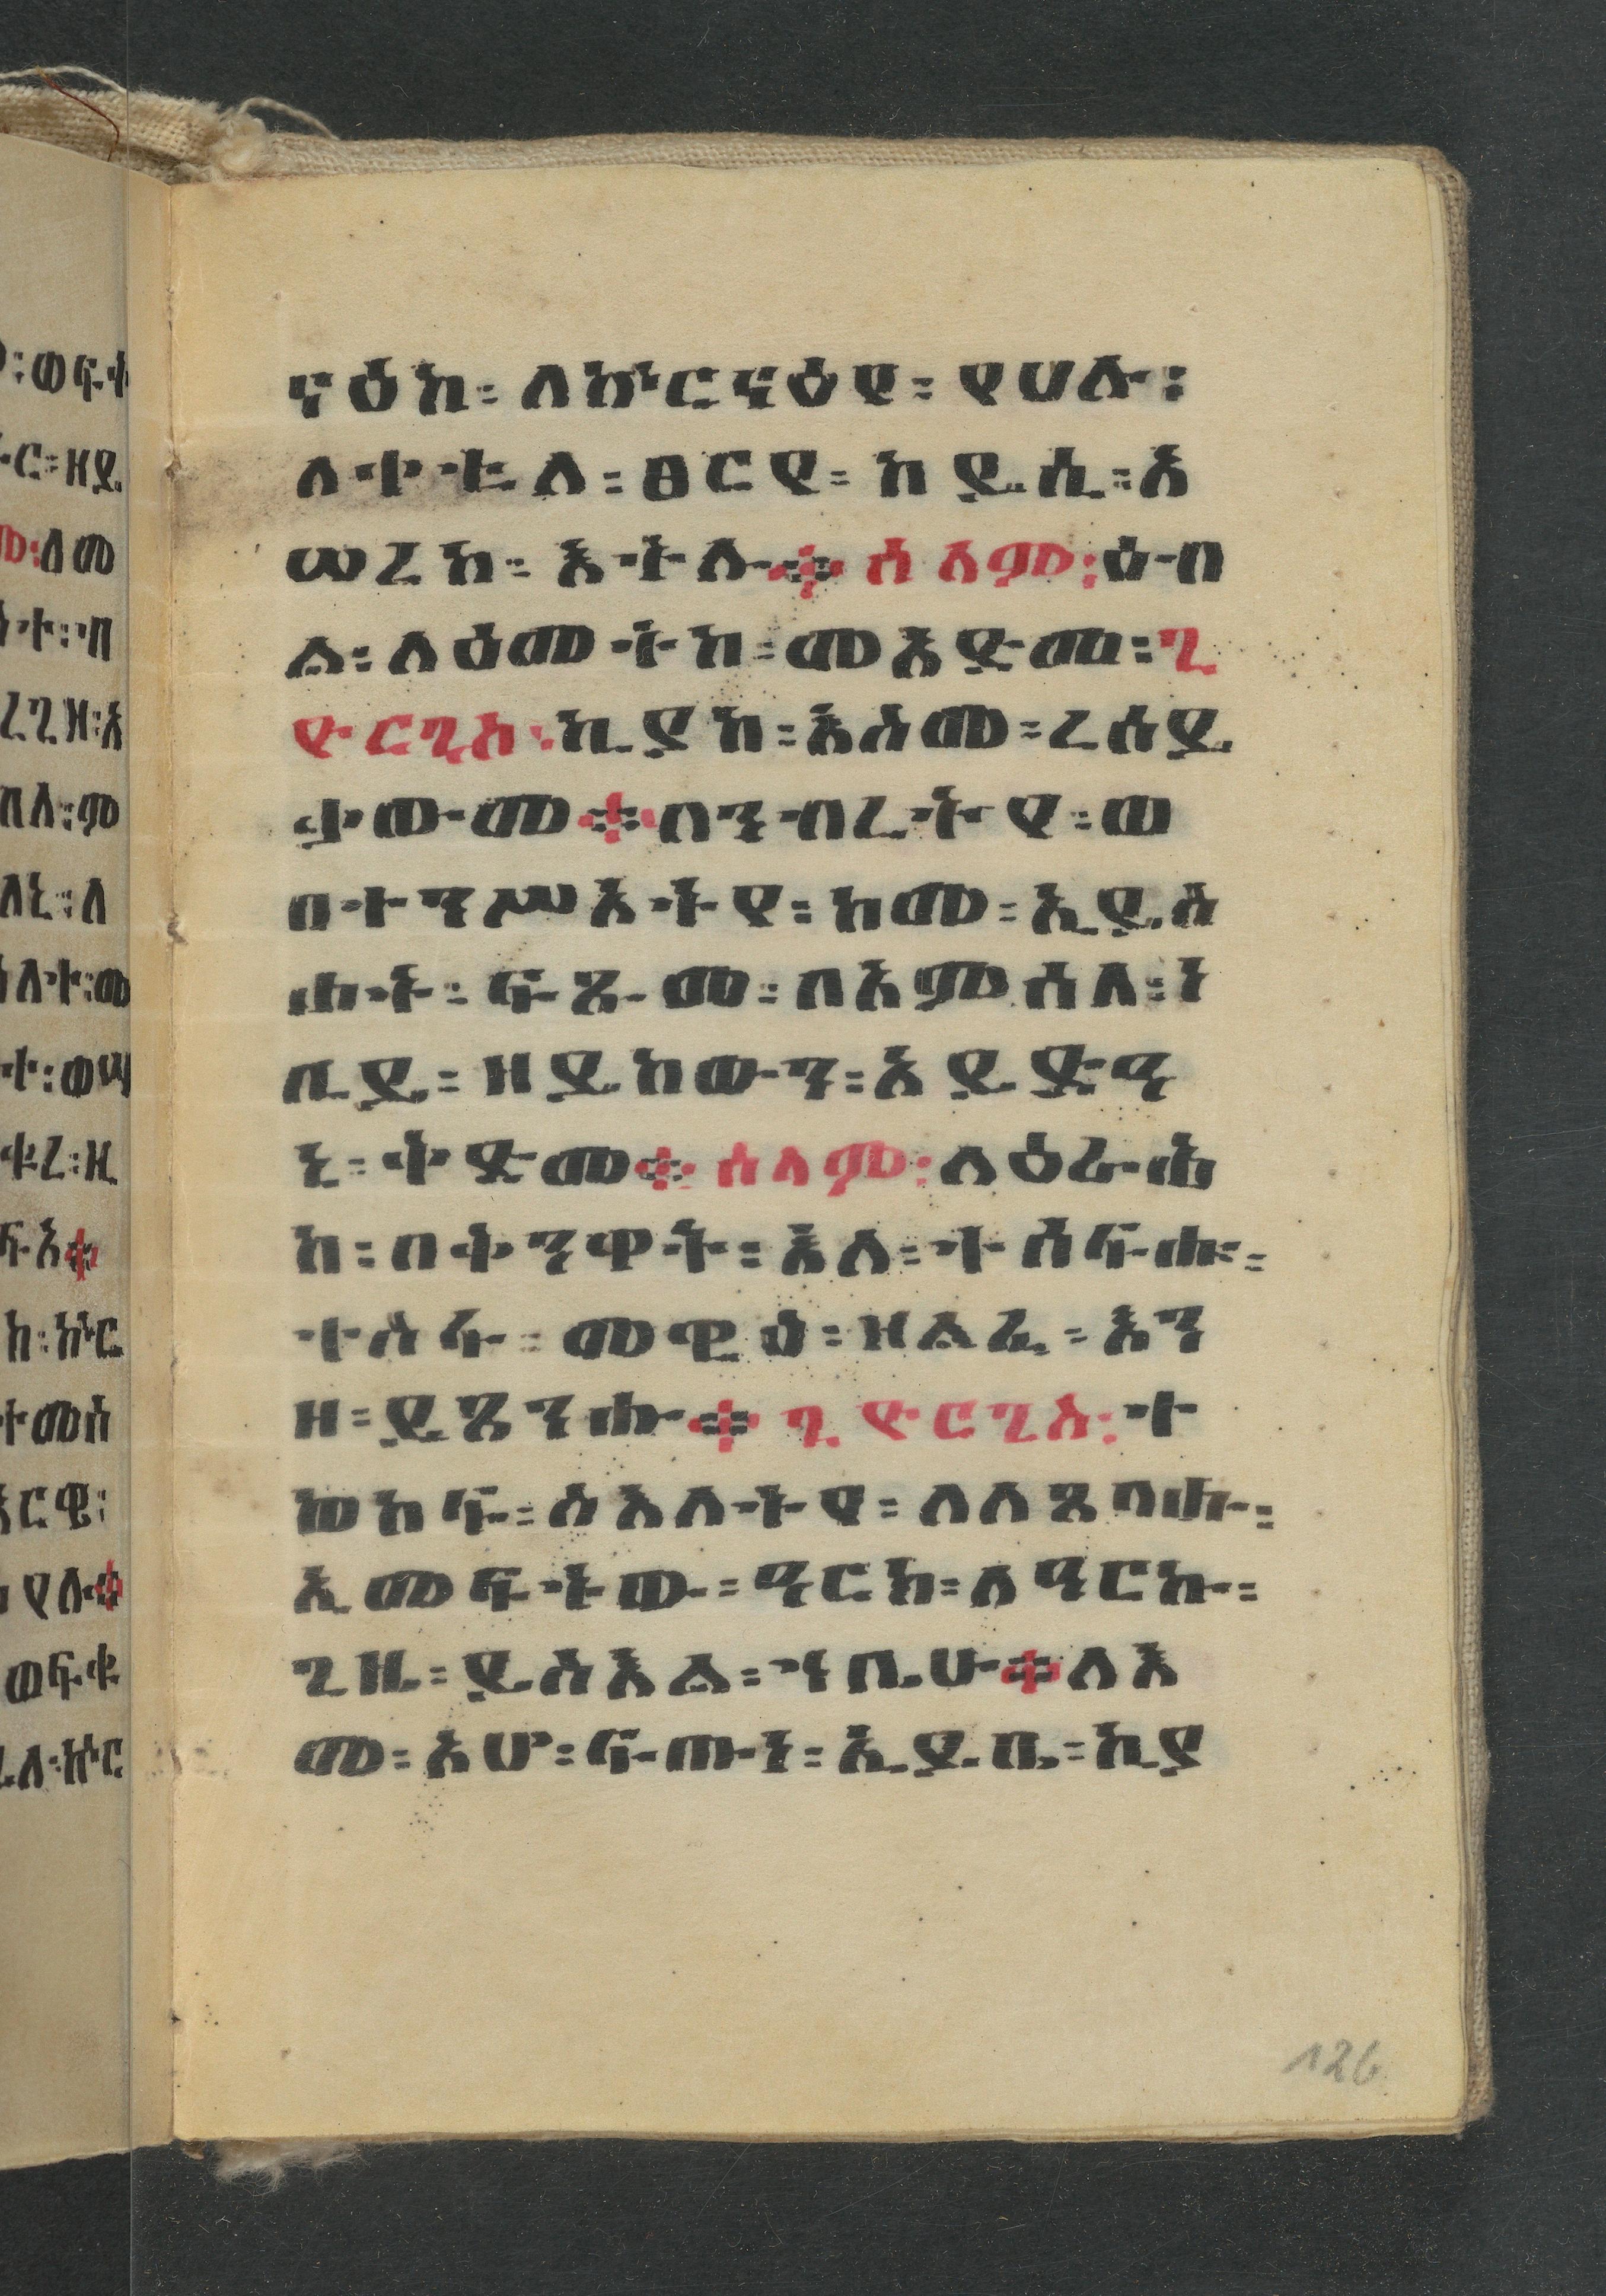 ናዕከ፡ ለኵርናዕየ፡ የሀሉ፡
ለቀቲለ፡ ፀርየ፡ ከይሲ፡ እ
ሠረከ፡ እትሉ። ሰላም፡ ዕብ
ል፡ ለዕመትከ፡ መእድመ፡ ጊ
ዮርጊስ፡ ኪያከ፡ እስመ፡ ረሰይ
ቃውመ። በንብረትየ፡ ወ
በተንሥእትየ፡ ከመ፡ ኢይስ
ሐት፡ ፍጹመ፡ በአምሳለ፡ ነ
ቢይ፡ ዘይከውን፡ እይድኅ
ኒ፡ ቀድመ። ሰላም፡ ለዕራቁ
ከ፡ በቅንዋት፡ እለ፡ ተሰፍሑ፡
ተስፋ፡ መዊዕ፡ ዘልፈ፡ እን
ዘ፡ ይጼንሑ። ጊዮርጊስ፡ ተ
ወከፍ፡ ስእለትየ፡ ለለጸባሑ፡
ኢመፍትው፡ ማርከ፡ ለማርኩ፡
ጊዜ፡ ይስእል፡ ኀቤሁ። ለእ
መ፡ አሆ፡ ፍጡነ፡ ኢይቤ፡ ኪያ
126